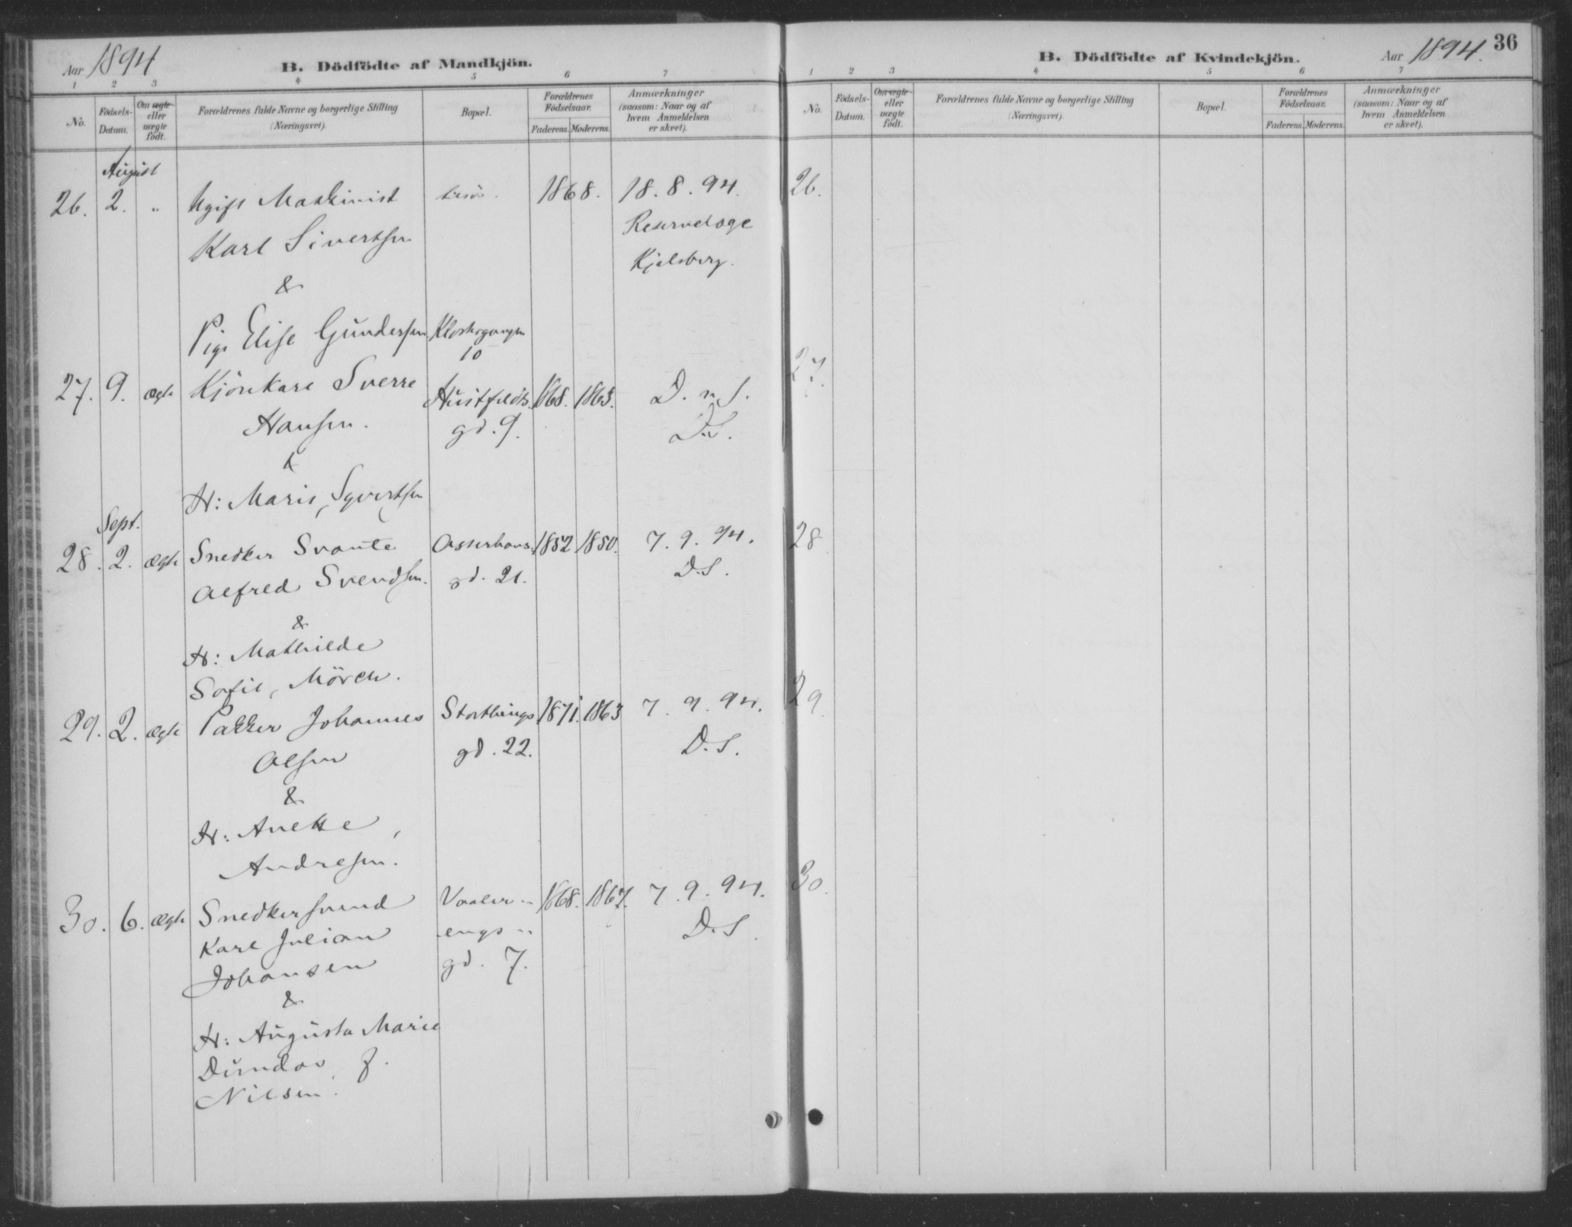 Aar 1894
B. Dödfödte af Mandkjön.
1 2 3 4 5 6 7
No.
Födsels-
Datum.
Om ægte
eller
uægte
födt.
Forældrenes fulde Navne og borgerlige Stilling
(Næringsvei).
Bopæl.
Forældrenes
Födselsaar.
Faderens. Moderens.
Anmærkninger
(saasom: Naar og af
hvem Anmeldelsen
er skeet).
August
26. 2. " Ugift Maskinist 1868. 18.8.94.
Karl Sivertsen Reservelæge
Kjelsberg.
&
Pige Elise Gundersen Klostergangen
10
27. 9. ægte Kjörekarl Sverre Huitfeldts 1868. 1863. D. S.
Hansen. gd. 9. D.S.
&
H: Marie, Syvertsen
Sept.
28. 2. ægte Snedker Svante 1852 1850. 7.9.94.
Alfred Svendsen. gd. 21. D.S.
&
H: Mathilde
Sofie, Mörch.
29. 2. ægte Pakker Johannes Storthings 1871. 1863 7.9.94.
Olsen gd. 22. D.S.
&
H: Anette,
Andresen.
30. 6. ægte Snedkersvend Vaaler- 1868. 1867. 7.9.94.
Karl Julian engs- D.S.
Johansen gd. 7.
&
H: Augusta Marie
Dundas f.
Nilsen.
36
B. Dödfödte af Kvindekjön.
Aar 1894.
1 2 3 4 5 6 7
No.
Födsels-
Datum.
Om ægte
eller
uægte
födt.
Forældrenes fulde Navne og borgerlige Stilling
(Næringsvei).
Bopæl.
Forældrenes
Födselsaar.
Faderens. Moderens.
Anmærkninger
(saasom: Naar og af
hvem Anmeldelsen
er skeet).
26.
27.
28
29.
30.